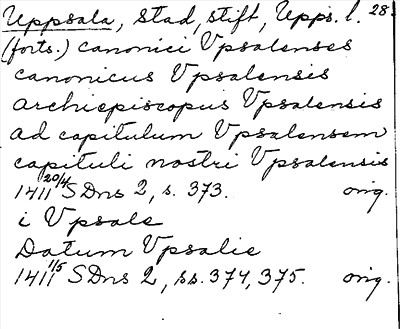 Uppsala, stad, stift, Upps. l. 28.
(forts.) canonici Vpsalenses
canonicus Vpsalensis
archiepiscopus Vpsalensis
ad capitulum Vpsalensem
capituli nostri Vpsalensis
1411 20/4 SDns 2, s. 373. orig.
i Vpsale
Datum Vpsalie
1411 1/5 SDns 2, ss. 374, 375. orig.